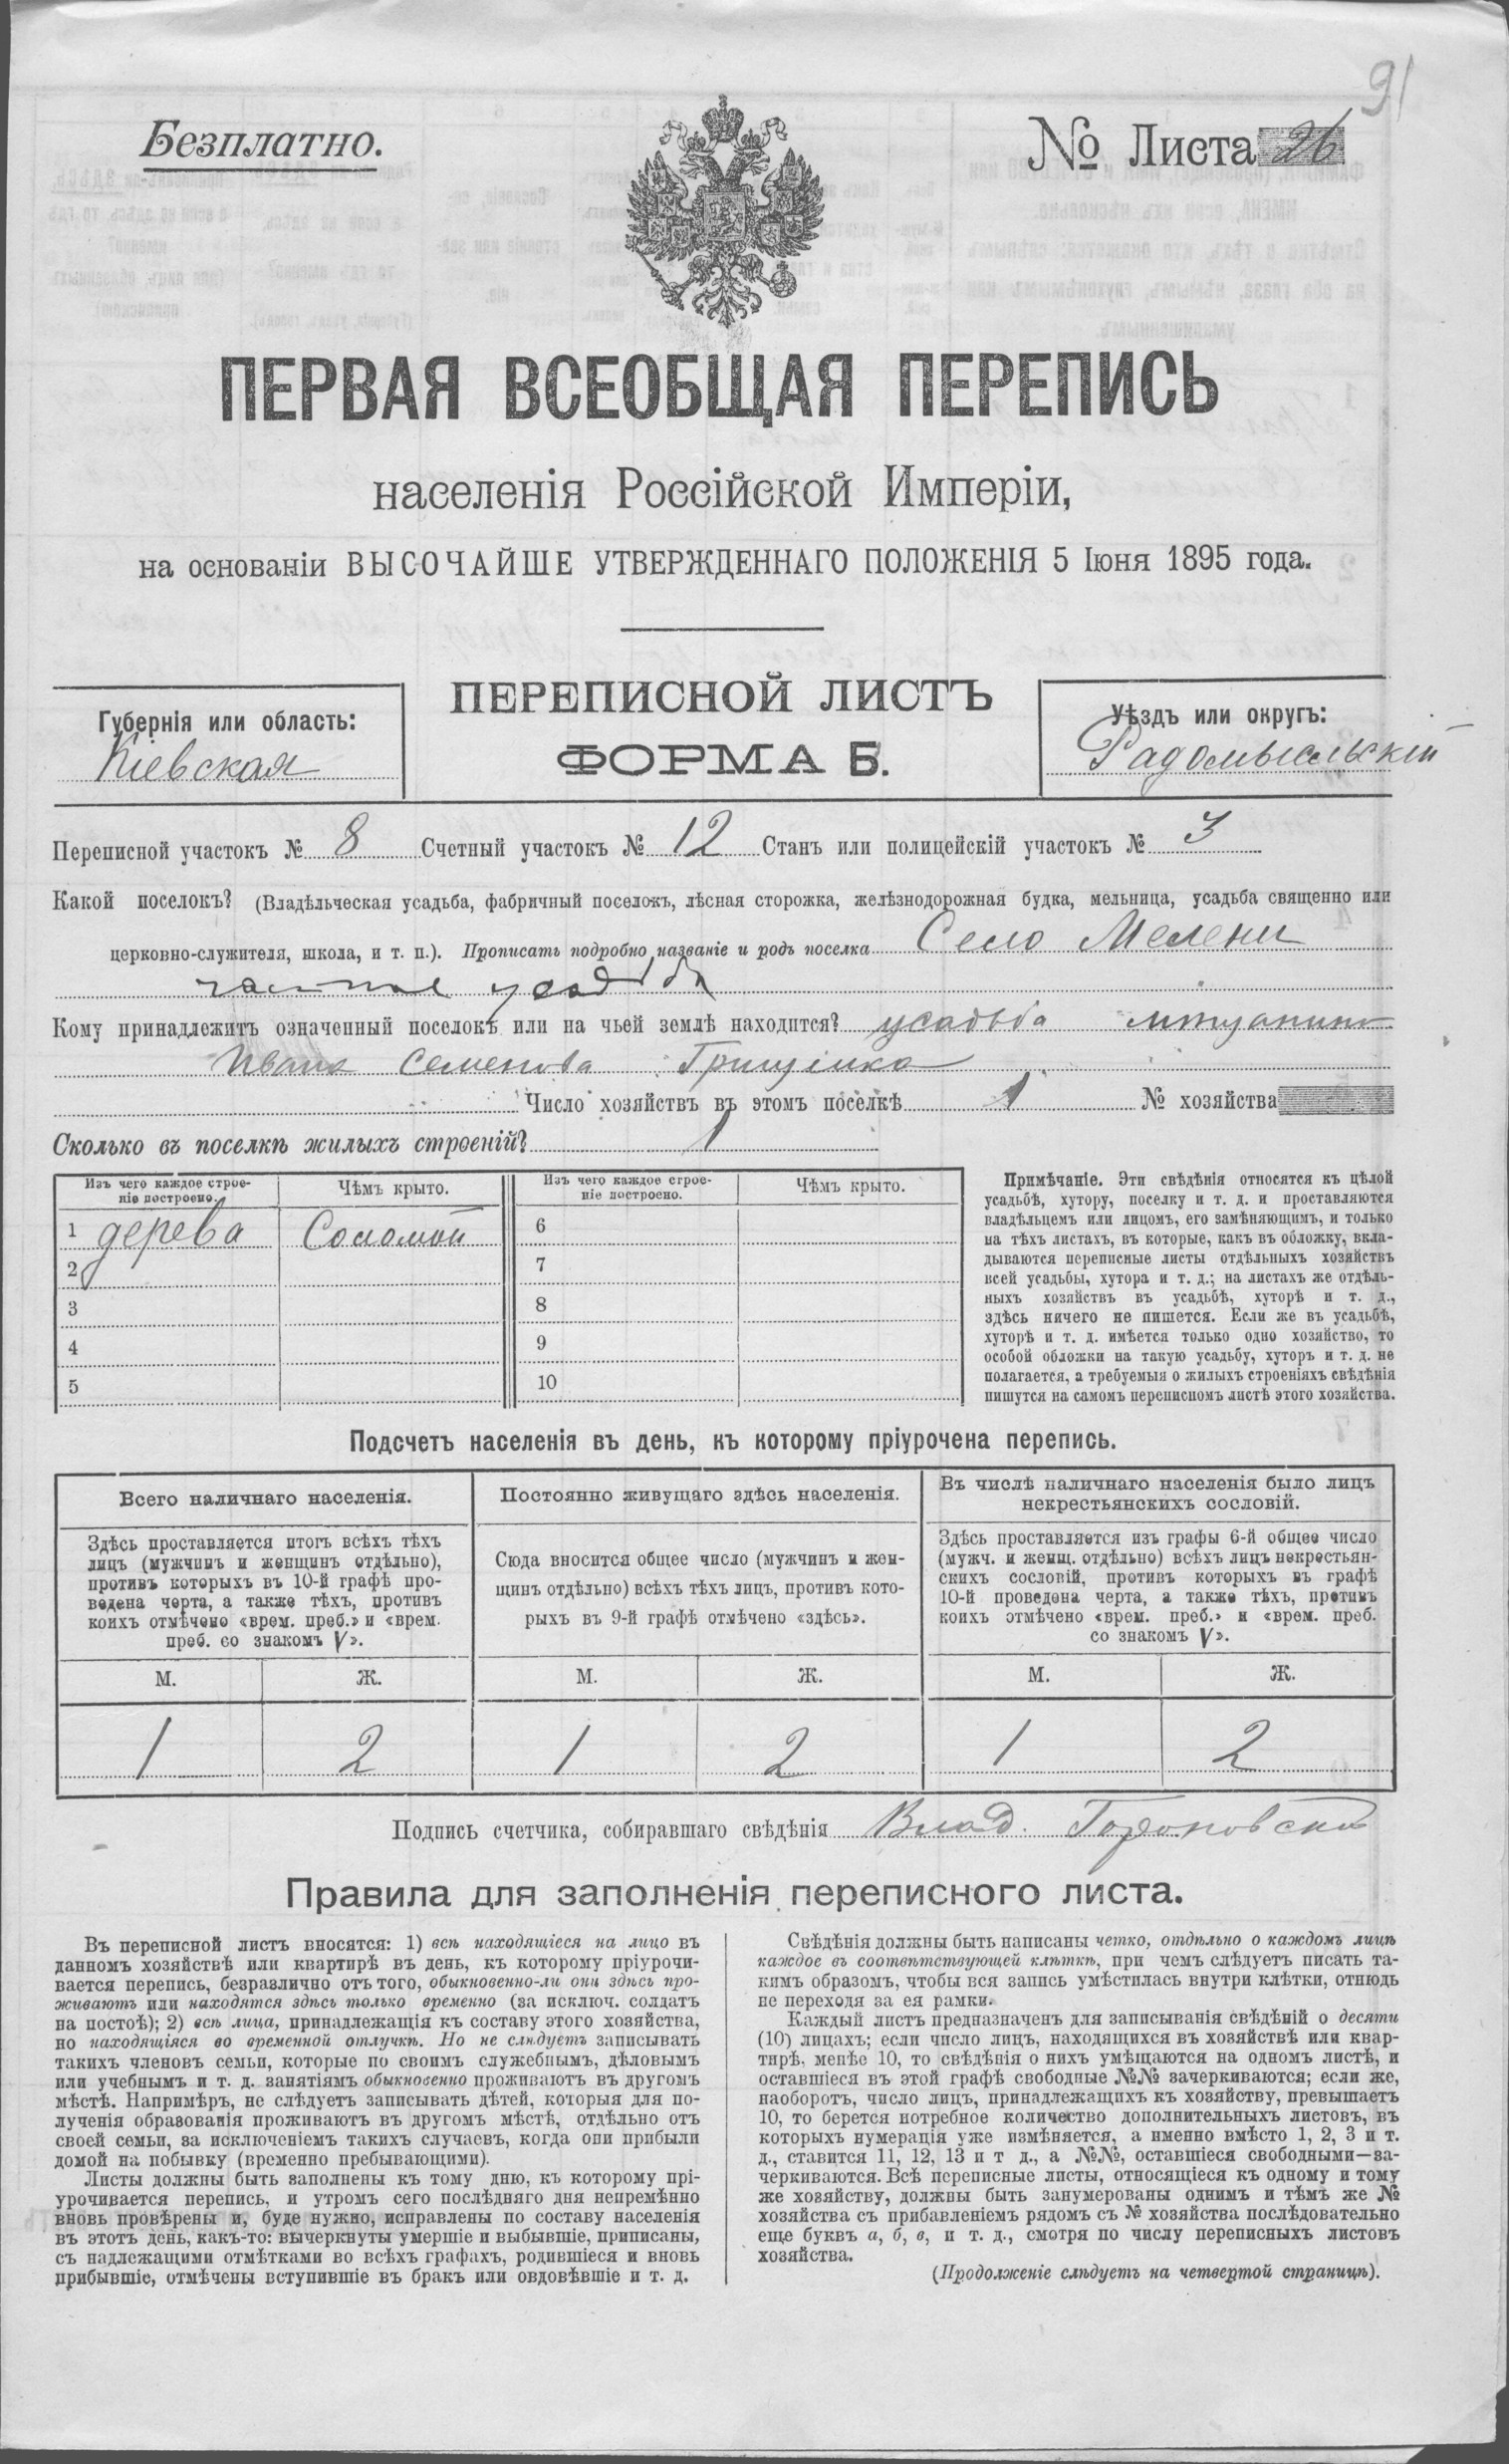 91
Безплатно.
№ Листа 26
ПЕРВАЯ ВСЕОБЩАЯ ПЕРЕПИСЬ
населенія Россійской Имперіи,
на основаніи ВЫСОЧАЙШЕ УТВЕРЖДЕННАГО ПОЛОЖЕНІЯ 5 Іюня 1895 года.
ПЕРЕПИСНОЙ ЛИСТЪ
ФОРМА Б.
Губернія или область:
Кіевская
Уѣздъ или округъ:
Радомысльскій
Переписной участокъ № 8 Счетный участокъ № 12 Станъ или полицейскій участокъ № 3
Какой поселокъ? (Владѣльческая усадьба, фабричный поселокъ, лѣсная сторожка, желѣзнодорожная будка, мельница, усадьба священно или
церковно-служителя, школа, и т. п.). Прописать подробно названіе и родъ поселка Село Мелени
усадьба
Кому принадлежитъ означенный поселокъ или на чьей землѣ находится? усадьба
Ивана Семенова Грищенка
Число хозяйствъ въ этомъ поселкѣ 1 № хозяйства
Сколько въ поселкѣ жилыхъ строеній? 1
Изъ чего каждое строе-
ніе построено.
Чѣмъ крыто.
Изъ чего каждое строе-
ніе построено.
Чѣмъ крыто.
1 дерева Соломой 6
2 7
3 8
4 9
5 10
Примѣчаніе. Эти свѣдѣнія относятся къ цѣлой
усадьбѣ, хутору, поселку и т. д. и проставляются
владѣльцемъ или лицомъ, его замѣняющимъ, и только
на тѣхъ листахъ, въ которые, какъ въ обложку, вкла-
дываются переписные листы отдѣльныхъ хозяйствъ
всей усадьбы, хутора и т. д.; на листахъ же отдѣль-
ныхъ хозяйствъ въ усадьбѣ, хуторѣ и т. д.,
здѣсь ничего не пишется. Если же въ усадьбѣ,
хуторѣ и т. д. имѣется только одно хозяйство, то
особой обложки на такую усадьбу, хуторъ и т. д. не
полагается, а требуемыя о жилыхъ строеніяхъ свѣдѣнія
пишутся на самомъ переписномъ листѣ этого хозяйства.
Подсчетъ населенія въ день, къ которому пріурочена перепись.
Всего наличнаго населенія.
Здѣсь проставляется итогъ всѣхъ тѣхъ
лицъ (мужчинъ и женщинъ отдѣльно),
противъ которыхъ въ 10-й графѣ про-
ведена черта, а также тѣхъ, противъ
коихъ отмѣчено «врем. преб.» и «врем.
преб. со знакомъ V».
М. Ж.
1 2
Постоянно живущаго здѣсь населенія.
Сюда вносится общее число (мужчинъ и жен-
щинъ отдѣльно) всѣхъ тѣхъ лицъ, противъ кото-
рыхъ въ 9-й графѣ отмѣчено «здѣсь».
М. Ж.
1 2
Въ числѣ наличнаго населенія было лицъ
некрестьянскихъ сословій.
Здѣсь проставляется изъ графы 6-й общее число
(мужч. и женщ. отдѣльно) всѣхъ лицъ некрестьян-
скихъ сословій, противъ которыхъ въ графѣ
10-й проведена черта, а также тѣхъ, противъ
коихъ отмѣчено «врем. преб.» и «врем. преб.
со знакомъ V».
М. Ж.
1 2
Подпись счетчика, собиравшаго свѣдѣнія Влад.
Правила для заполненія переписного листа.
Въ переписной листъ вносятся: 1) всѣ находящіеся на лицо въ
данномъ хозяйствѣ или квартирѣ въ день, къ которому пріурочи-
вается перепись, безразлично отъ того, обыкновенно-ли они здѣсь про-
живаютъ или находятся здѣсь только временно (за исключ. солдатъ
на постоѣ); 2) всѣ лица, принадлежащія къ составу этого хозяйства,
но находящіяся во временной отлучкѣ. Но не слѣдуетъ записывать
такихъ членовъ семьи, которые по своимъ служебнымъ, дѣловымъ
или учебнымъ и т. д. занятіямъ обыкновенно проживаютъ въ другомъ
мѣстѣ. Напримѣръ, не слѣдуетъ записывать дѣтей, которыя для по-
лученія образованія проживаютъ въ другомъ мѣстѣ, отдѣльно отъ
своей семьи, за исключеніемъ такихъ случаевъ, когда они прибыли
домой на побывку (временно пребывающими).
Листы должны быть заполнены къ тому дню, къ которому прі-
урочивается перепись, и утромъ сего послѣдняго дня непремѣнно
вновь провѣрены и, буде нужно, исправлены по составу населенія
въ этотъ день, какъ-то: вычеркнуты умершіе и выбывшіе, приписаны,
съ надлежащими отмѣтками во всѣхъ графахъ, родившіеся и вновь
прибывшіе, отмѣчены вступившіе въ бракъ или овдовѣвшіе и т. д.
Свѣдѣнія должны быть написаны четко, отдѣльно о каждомъ лицѣ
каждое въ соотвѣтствующей клѣткѣ, при чемъ слѣдуетъ писать та-
кимъ образомъ, чтобы вся запись умѣстилась внутри клѣтки, отнюдь
не переходя за ея рамки.
Каждый листъ предназначенъ для записыванія свѣдѣній о десяти
(10) лицахъ; если число лицъ, находящихся въ хозяйствѣ или квар-
тирѣ, менѣе 10, то свѣдѣнія о нихъ умѣщаются на одномъ листѣ, и
оставшіеся въ этой графѣ свободные №№ зачеркиваются; если же,
наоборотъ, число лицъ, принадлежащихъ къ хозяйству, превышаетъ
10, то берется потребное количество дополнительныхъ листовъ, въ
которыхъ нумерація уже измѣняется, а именно вмѣсто 1, 2, 3 и т.
д., ставится 11, 12, 13 и т д., а №№, оставшіеся свободными—за-
черкиваются. Всѣ переписные листы, относящіеся къ одному и тому
же хозяйству, должны быть занумерованы однимъ и тѣмъ же №
хозяйства съ прибавленіемъ рядомъ съ № хозяйства послѣдовательно
еще буквъ а, б, в, и т. д., смотря по числу переписныхъ листовъ
хозяйства.
(Продолженіе слѣдуетъ на четвертой страницѣ).